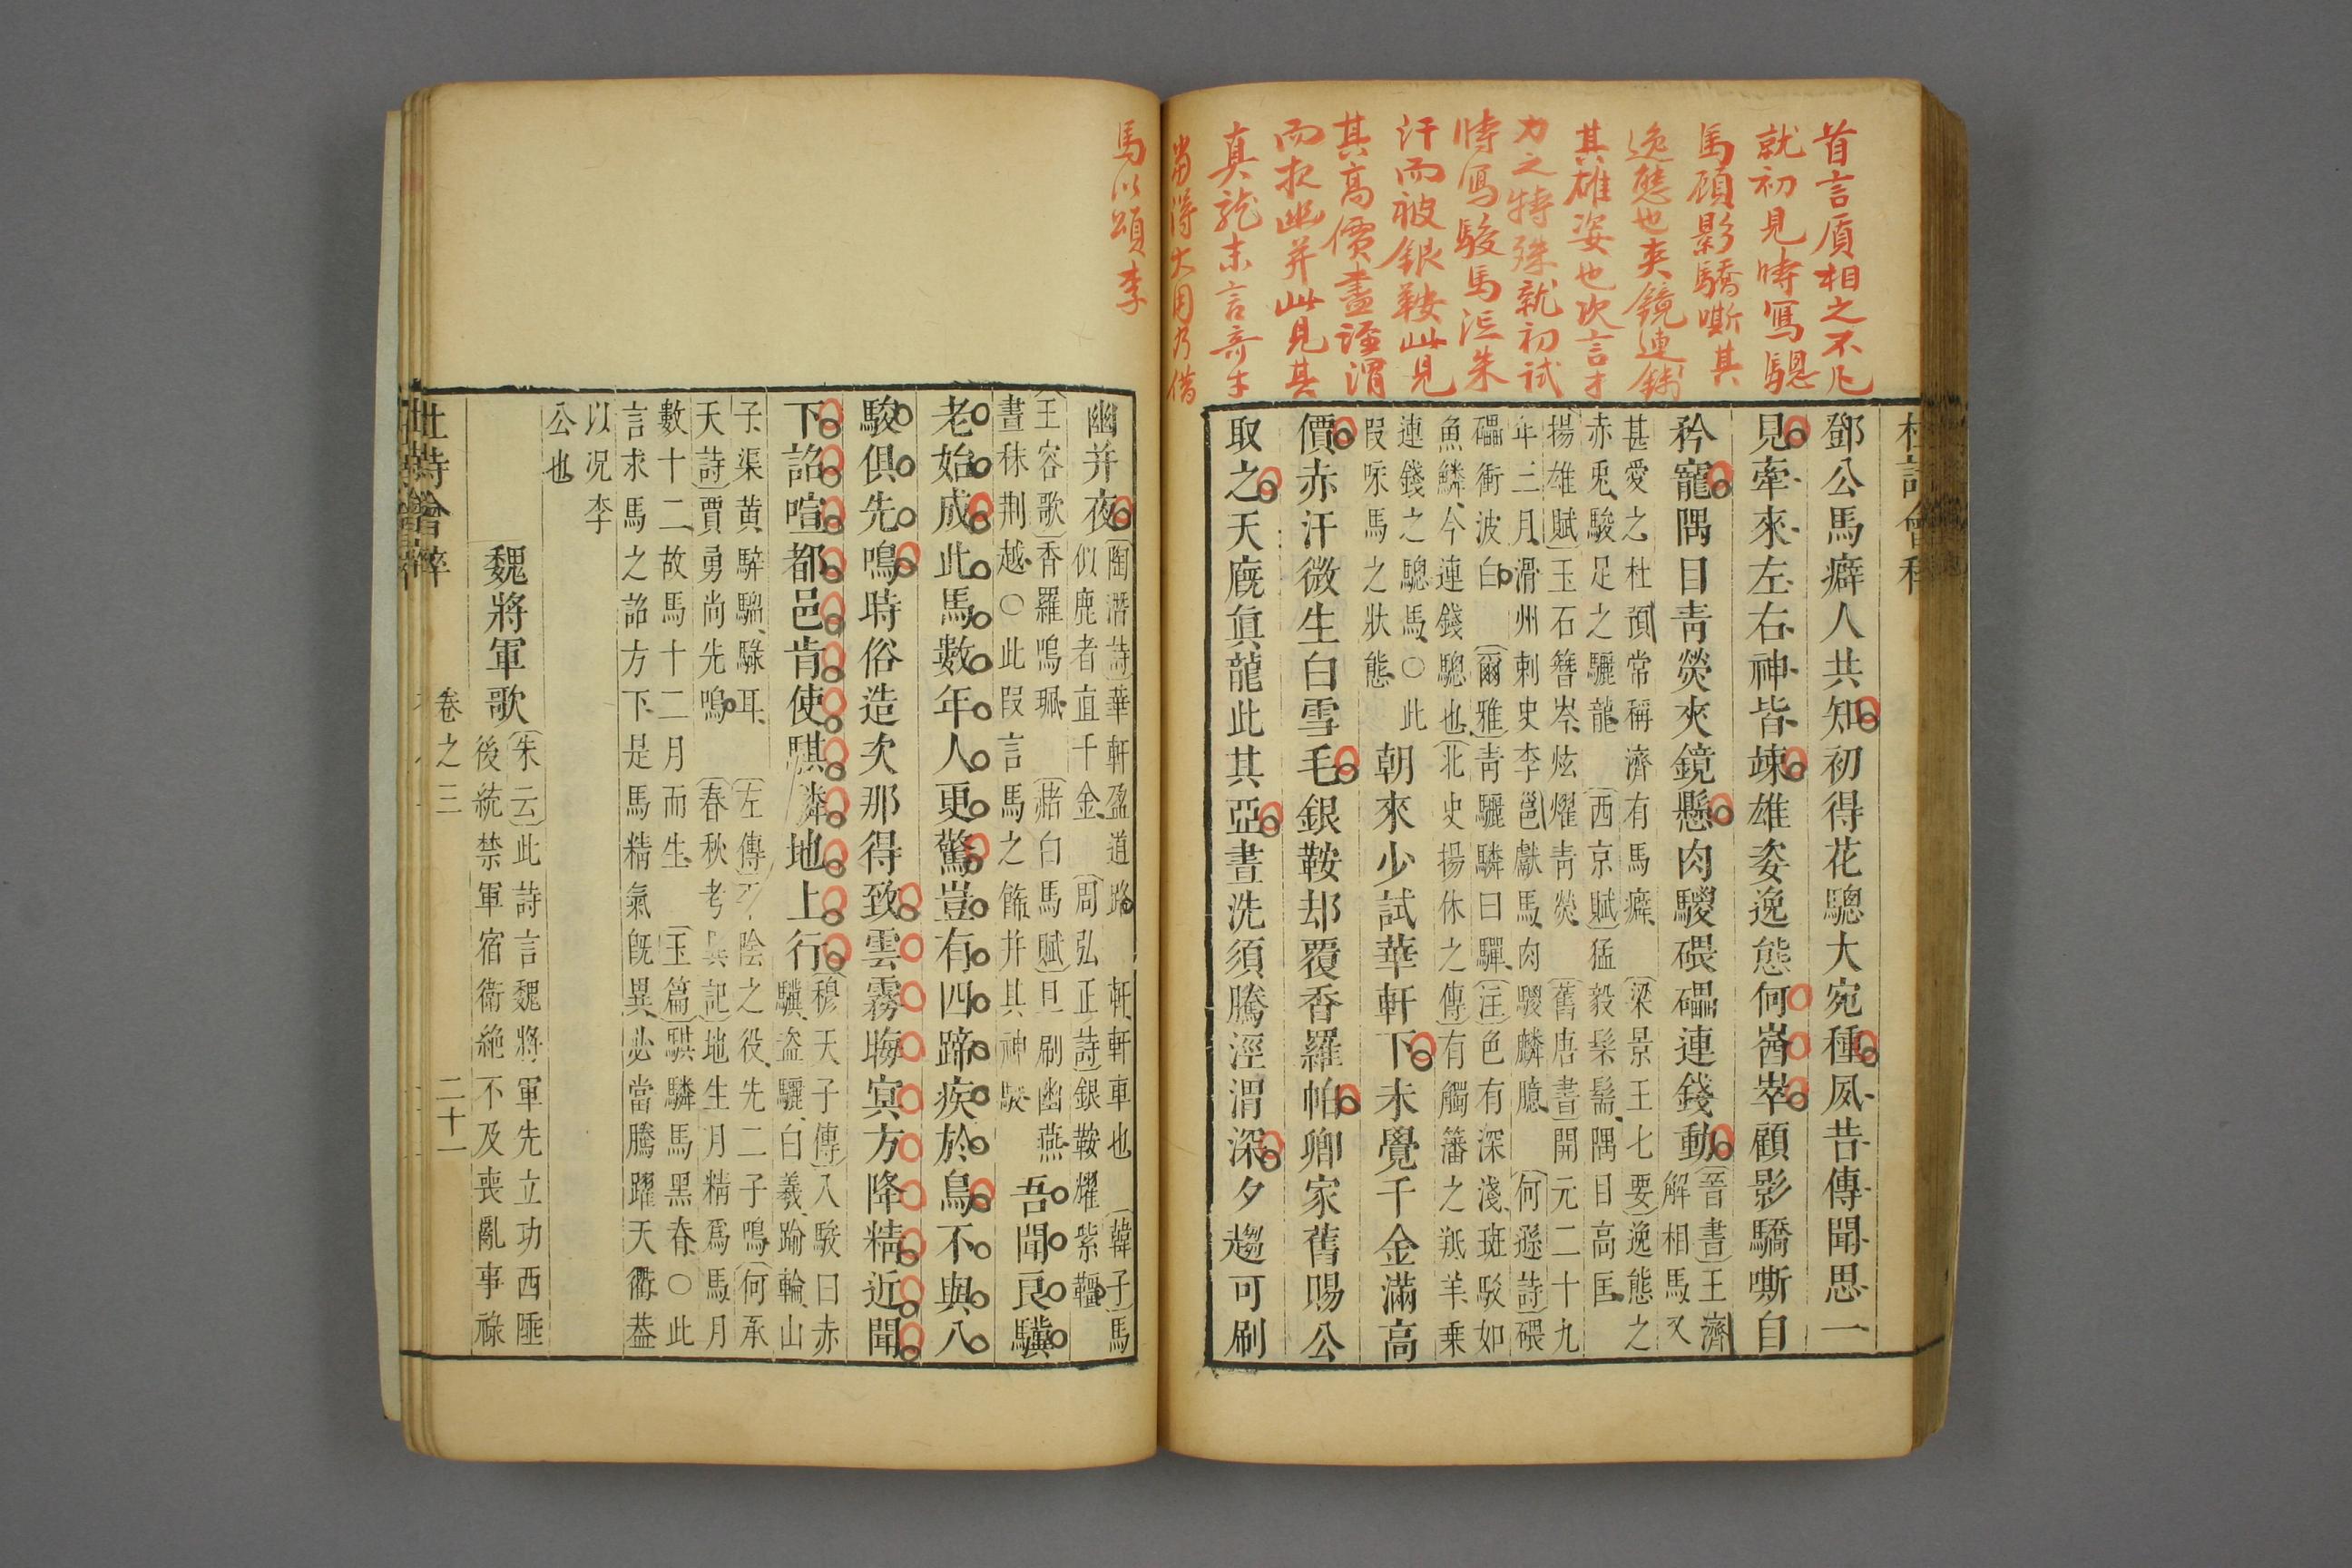 首言質相之不凡
就初見時寫驄
馬顧影驕嘶其
逸態也夾鏡連錢
其雄姿也次言才
力之特殊就初試
時寫駿馬泛朱
汗而被銀鞍此見
其高價晝涇渭
而夜幽并此見其
真龍末言奇才
當得大用乃借
馬以頌李
鄧公馬癖人共知初得花驄大宛種夙昔傳聞思一
見牽來左右神皆竦雄姿逸態何崷崒顧影驕嘶自
矜寵隅目青熒夾鏡懸肉騣碨礧連錢動
晉書王濟
解相馬又
甚愛之杜預常稱濟有馬癖
梁景王七要逸態之
赤兎駿足之驪龍
西京賦猛毅髬髵隅目高匡
揚雄賦玉石簪岑炫燿青熒
舊唐書開元二十九
年三月滑州刺史李邕獻馬肉騣麟臆
何遜詩碨
礧衝波白
爾雅青驪驎曰驒
注色有深淺斑駁如
魚鱗今連錢驄也
北史揚休之傳有觸籓之羝羊乗
連錢之驄馬○此
叚咏馬之狀態
朝來少試華軒下未覺千金滿高
價赤汗微生白雪毛銀鞍却覆香羅帕卿家舊賜公
取之天廐眞龍此其亞晝洗須騰涇渭深夕趨可刷
幽并夜
陶潜詩華軒盈道路
軒軒車也
韓子馬
似鹿者直千金
周弘正詩銀鞍耀紫韁
王容歌香羅鳴珮
赭白馬賦旦刷幽燕
晝秣荆越○此叚言馬之餙并其神駿
吾聞良驥
老始成此馬數年人更驚豈有四蹄疾於鳥不與八
駿俱先鳴時俗造次那得致雲霧晦冥方降精近聞
下詔喧都邑肯使騏驎地上行
穆天子傳八駿曰赤
驥盗驪白義踰輪山
子渠黄驊騮騄耳
左傳平陰之役先二子鳴
何承
天詩賈勇尚先鳴
春秋考異記地生月精爲馬月
數十二故馬十二月而生
玉篇騏驎馬黑脊○此
言求馬之詔方下是馬精氣旣異必當騰躍天衢葢
以况李
公也
魏將軍歌
朱云此詩言魏將軍先立功西陲
後統禁軍宿衛絶不及喪亂事祿
杜詩會稡
卷之三
二十一